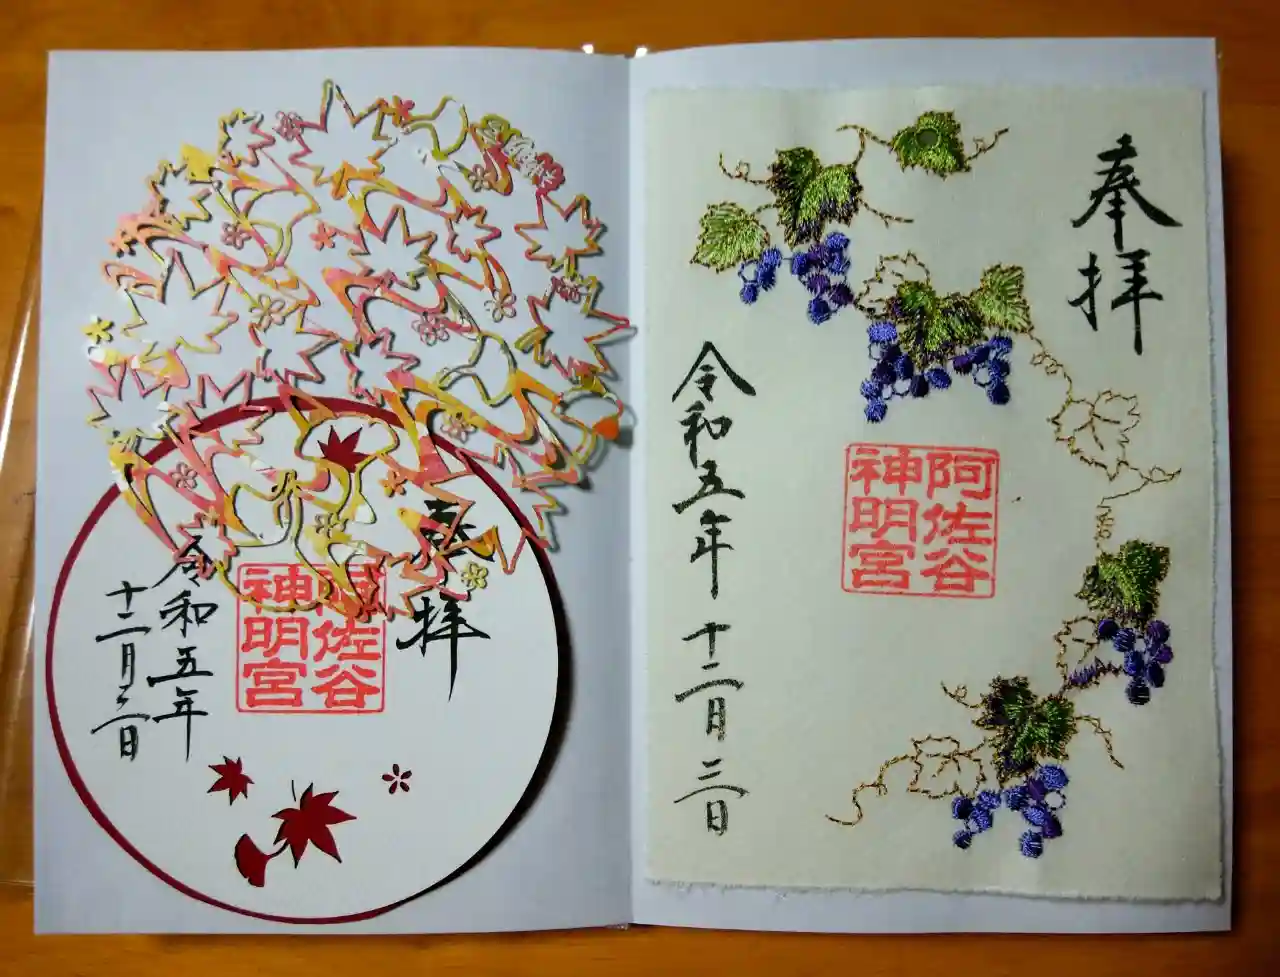 奉拝
阿佐谷
神明宮
令和五年十二月三日
奉拝
阿佐谷
神明宮
令和五年
十二月三日